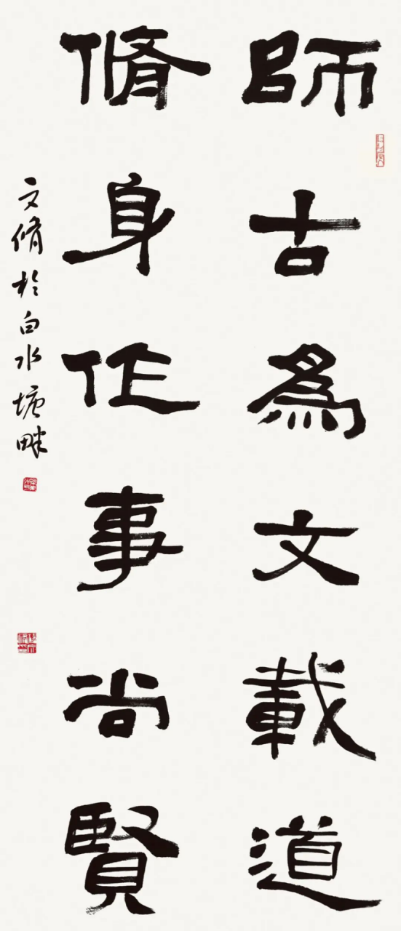 師古為文載道
脩身作事尚賢
文脩於白水塘畔